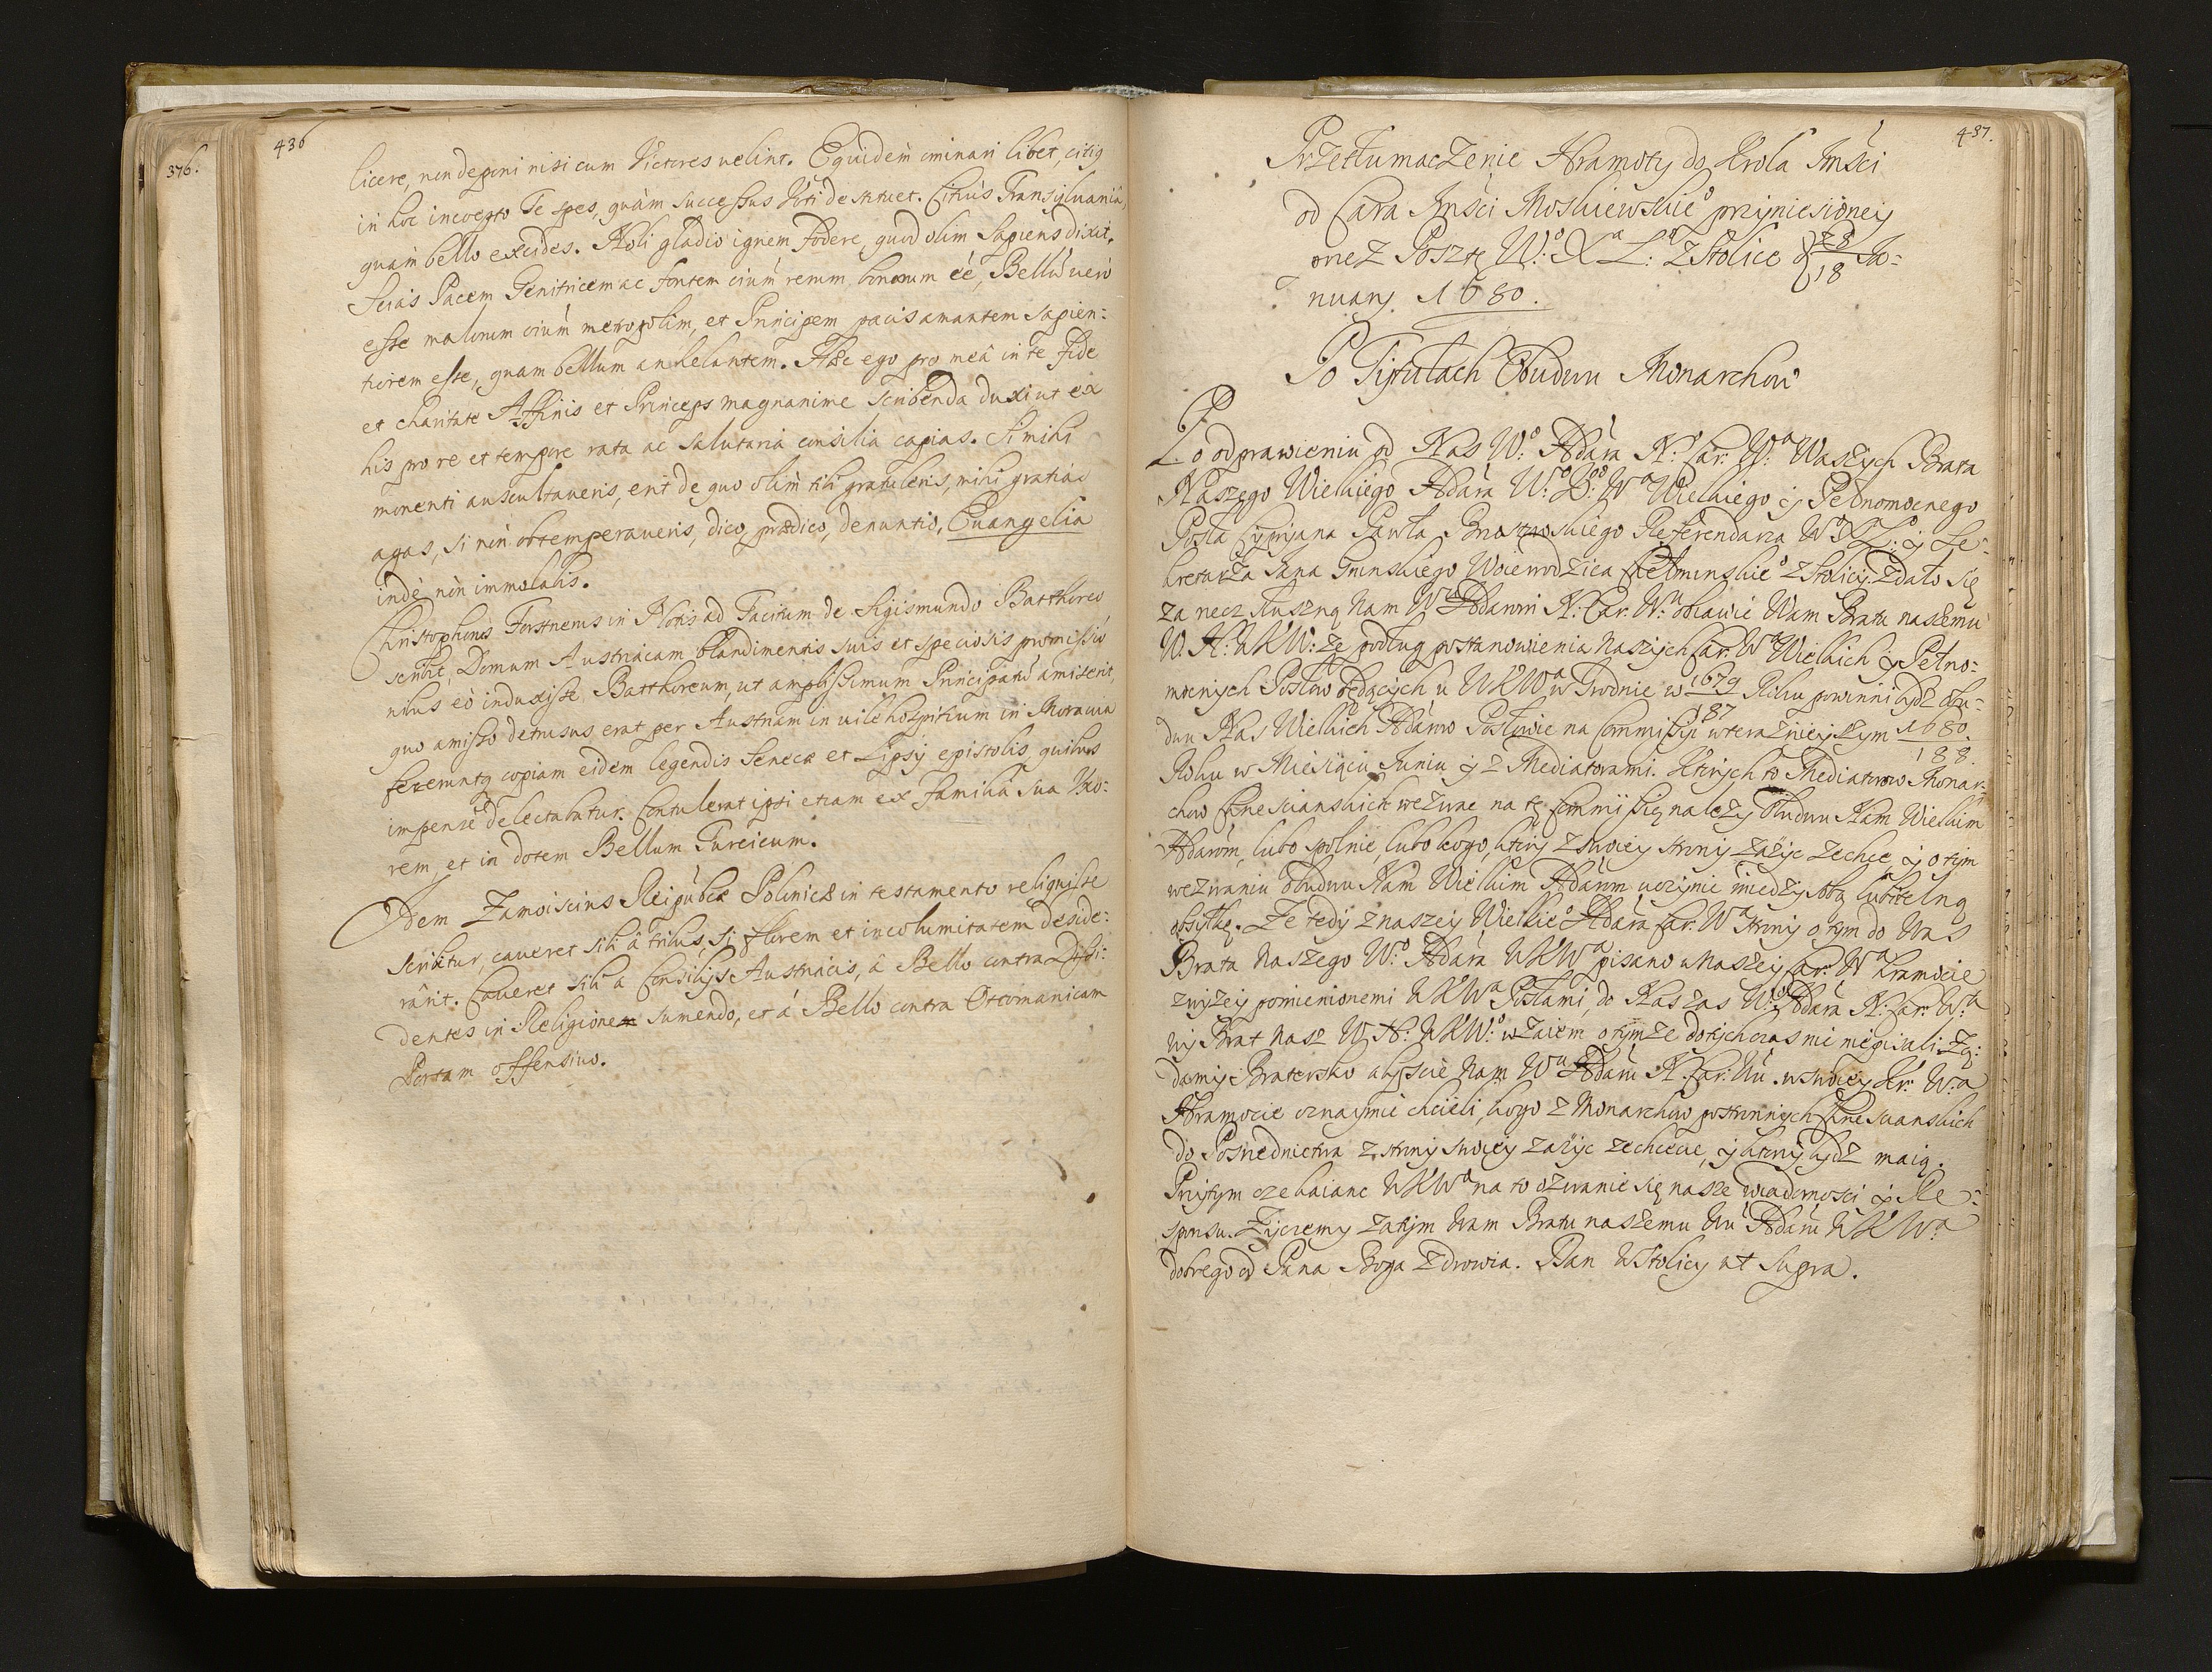 376.
436
licere, non deponi nisi cum Victores velint. Equidem ominari libet, citiq
in hoc incoepto Te spes, quàm successus Uti destituet. Citius Transylvaniâ,
quam bello excides. Noli gladio ignem fodere, quod olim Sapiens dixit.
Scias Pacem Genitricem ac fontem oium rerum bonarum eê, Bellũ vero
esse malorum oium metropolim, et Principem pacis amantem sapien:
tiorem esse, quam bellum anhelantem. Haec ego pro meâ in te fide
et charitate Affinis et Princeps magnanime scribenda duxi ut ex
his pro re et tempore rata ac salutaria consilia capias. Si mihi
monenti auscultaveris, erit de quo olim tibi gratuleris, mihi gratias
agas, si non obtemperaveris, dico, praedico, denuntio, Evangelia
indè non immolabis.
Christophorus Forstnerus in Notis ad Tacitum de Sigismundo Batthoreo
scribit, Domum Austriacam blandimentis suis et speciosis promissio
nibus eò induxisse Batthoreum, ut amplissimum Principatũ amiserit,
quo amisso detrusus erat per Austriam in vile hospitium in Moravia
feceruntq copiam eidem legendis Senecae et Lipsij epistolis quibus
impense is delectabatur. Contulerat ipsi etiam ex familia sua Uxo:
rem, et in dotem Bellum Turcicum.
Idem Zamoiscius Reipublcae Polonicae in testamento reliquisse
scribitur, caveret sibi â tribus, si florem et incolumitatem deside:
rârit. Caveret sibi a Consilijs Austriacis, â Bello contra Dissi:
dentes in Religione sumendo, et á Bello contra Ottomanicam
Portam offensivo.
437.
Przetłumaczenie Hramoty do Krola Jmśći
od Cara Jmśći Moskiewskie° przyniesioney
przez Posztę W°: X L: z Stolice 28/18 Ja:
nuary 1680.
Po Tytułach Obudwu Monarchow
Po odprawieniu od Nas W°: Hdára N: Car: Wa: Waszych Brata
Naszego Wielkiego Hdára W: K: Wa Wielkiego y Pełnomocnego
Posła Cypryana Pawła Brzostowskiego Referendarza W°XL: y Se:
kretarza Jana Gninskiego Woiewodzica Chełminskie° z Stolicy. Zdało się
za rzecz słuszną Nam Wm Hdarom N: Car: Wa obiawić Wam Bratu naszemu
W. H: WKW: że podług postanowienia Naszych Car: Wa Wielkich y Pełno:
mocnych Posłow będących u WKWa w Grodnie w 1679/187 Roku powinni bydź obu:
dwu Nas Wielkich Hdárow Posłowie na Commissyi w teraźnieyszym 1680./188.
Roku w Miesiącu Juniu y z Mediatorami. Ktorych to Mediatorow Monar:
chow Chrześcianskich wezwac na tę Commissię należy Obudwu Nam Wielkim
Hdárom, lubo spolnie, lubo kogo, ktory z swoiey strony zażyc zechce, y o tym
wezwaniu Obudwu Nam Wielkim Hdárom uczynic między sobą lubitelną
obsyłkę. Że tedy z naszey Wielkie° Hdára Car: Wa strony o tym do Was
Brata Naszego W°: Hdára WKWa pisano w Naszey Car: Wa hramocie
z wyżey pomienionemi WKWa Posłami, do Nas zas W° Hdára N: Car: Wa
wy Brat nasz W. H: WKW: wzaiem o tymże dotychczas nie nepisali. Żą:
damy Bratersko abyście Nam Wu Hdáru N: Car: Wu. w swoiey Kr: Wa
Hramocie oznaymić chcieli, kogo z Monarchow postronnych Chrześcianskich
do Posrednictwa z strony swoiey zażyc zechcecie, y ktorzy bydź maią.
Przytym czekaiąc WKWa na to ozwanie się nasze wiadomości y Re:
sponsu. Życzemy zatym Wam Bratu naszemu Wu Hdáru WKWa
dobrego od Pana Boga zdrowia. Dan w Stolicy ut supra.